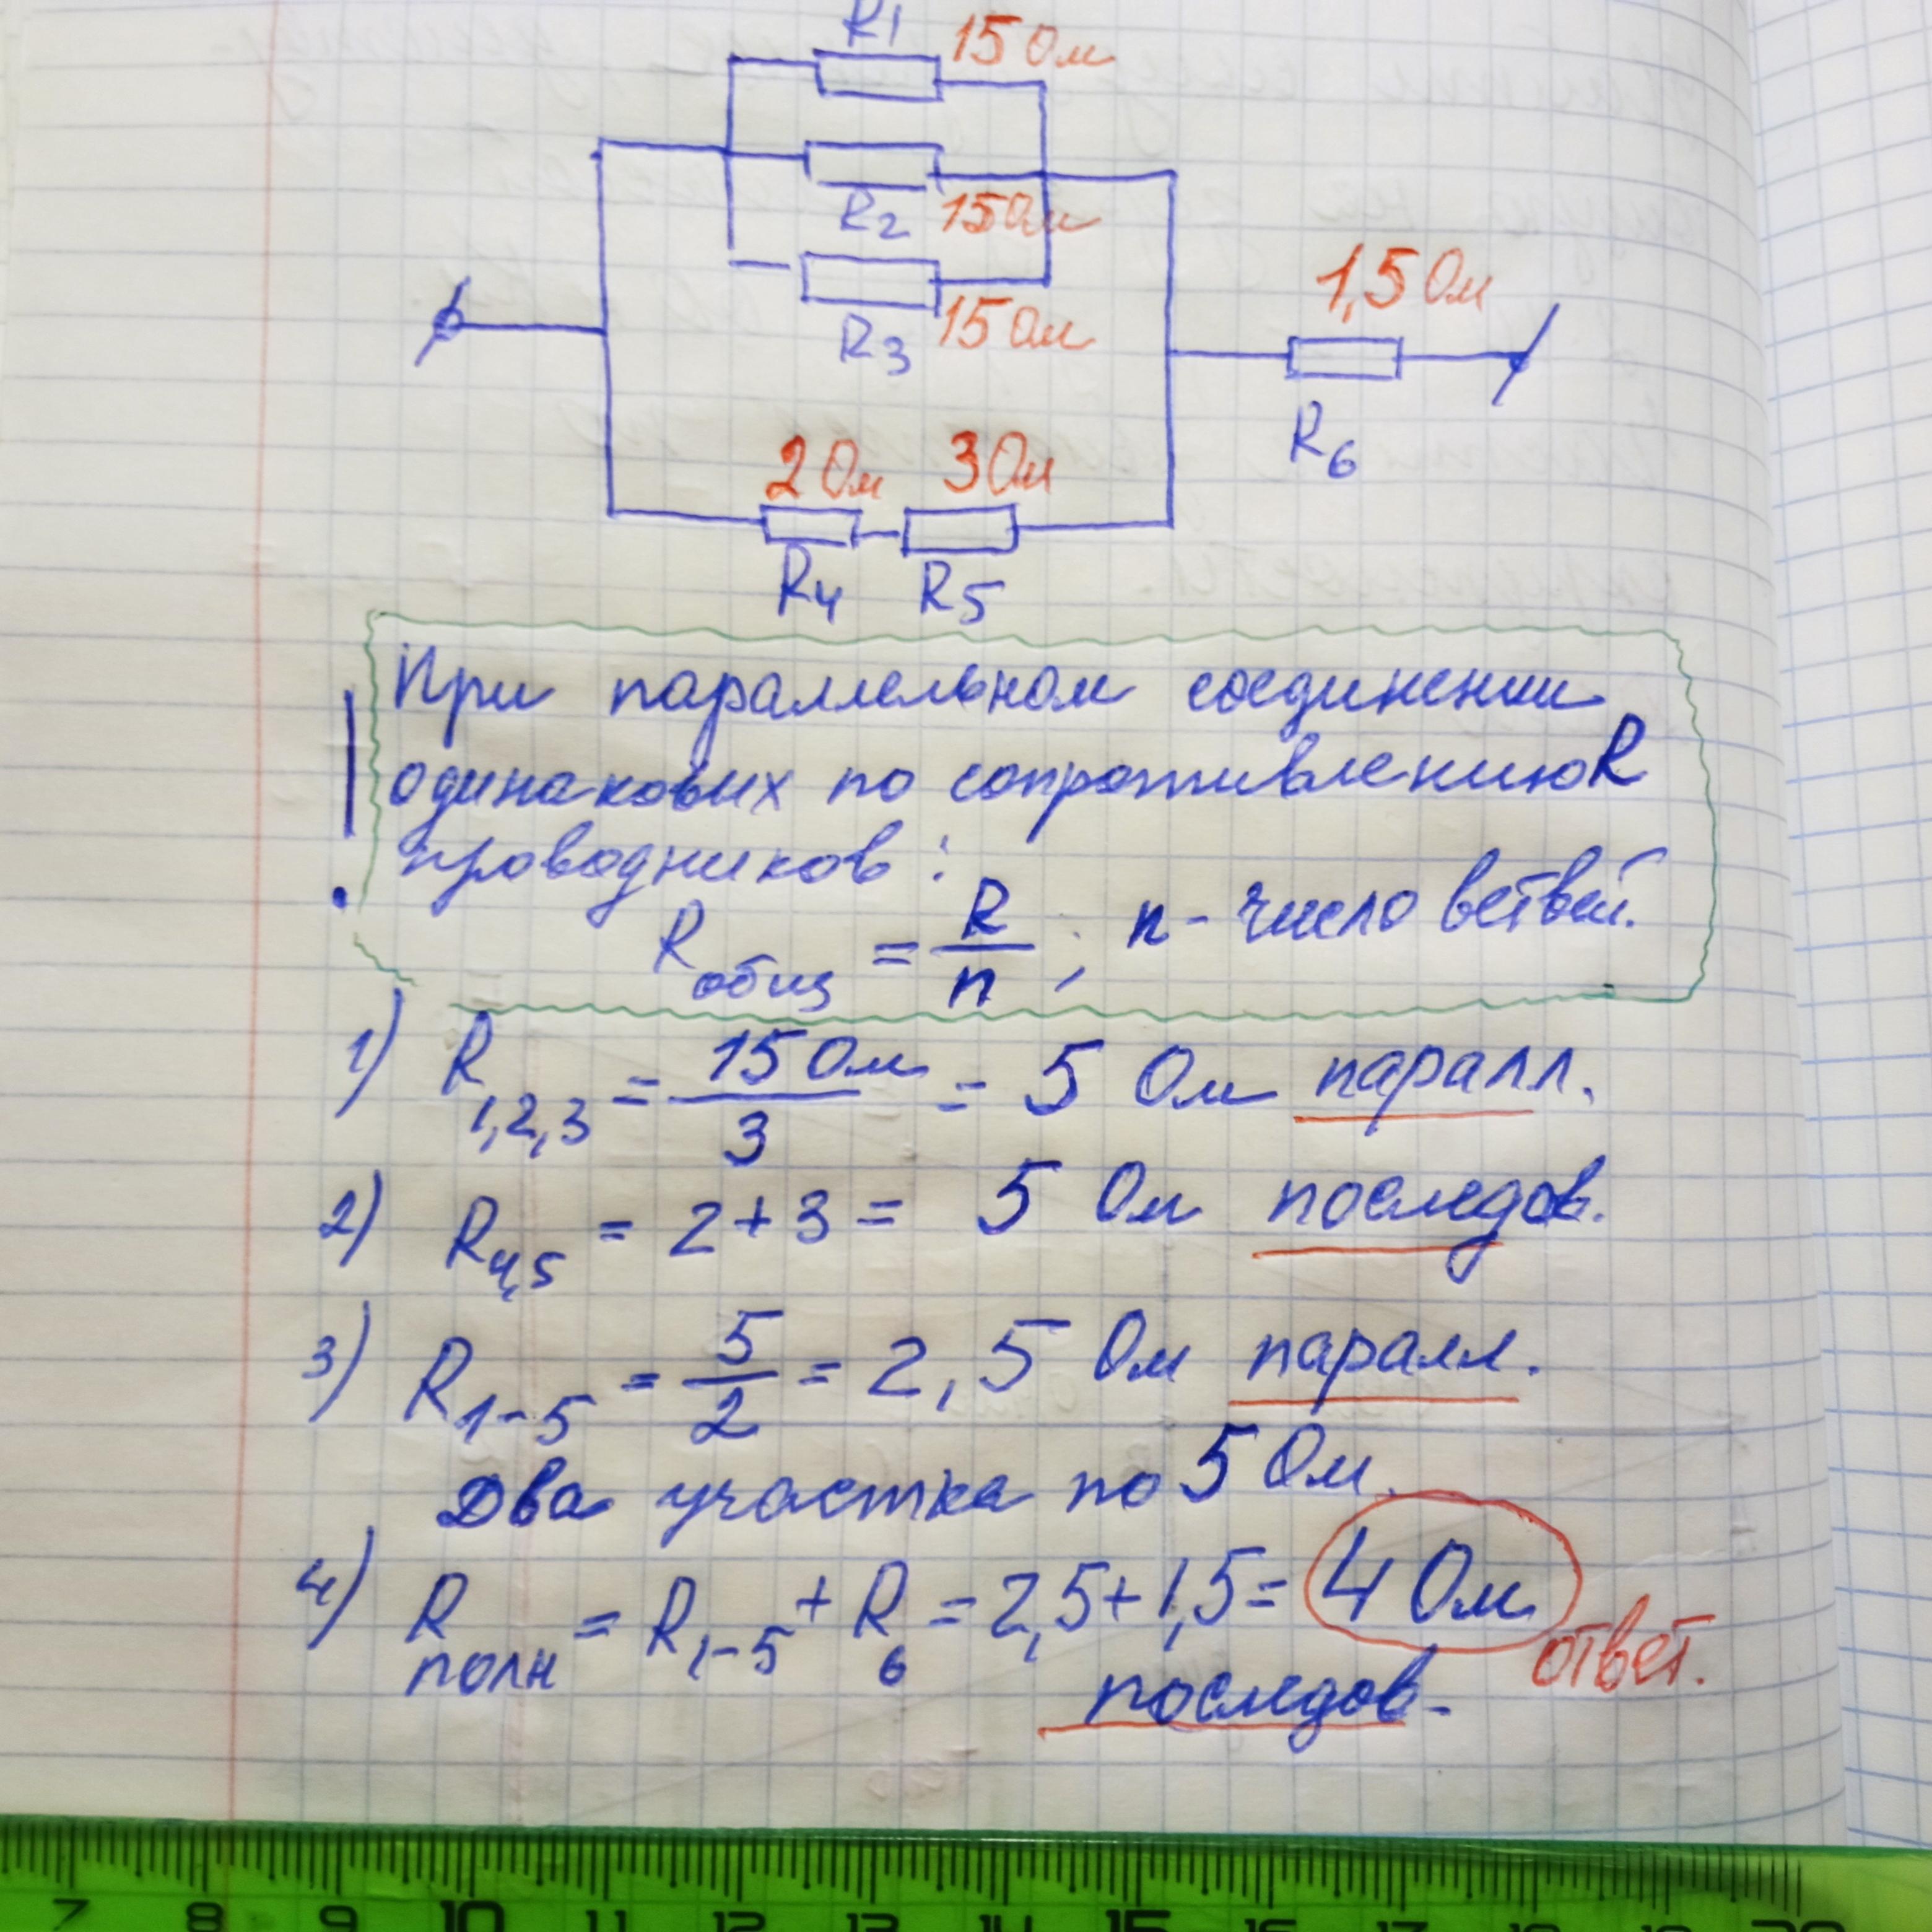 R1 15 Ом
R2 15 Ом
R3 15 Ом
1,5 Ом
R6
2 Ом 3 Ом
R4 R5
При параллельном соединении
одинаковых по сопротивлению R
проводников:
Rобщ = R/n ; n - число ветвей.
1) R1,2,3 = 15 Ом/3 = 5 Ом паралл.
2) R4,5 = 2+3 = 5 Ом последов.
3) R1-5 = 5/2 = 2,5 Ом паралл.
Два участка по 5 Ом.
4) Rполн = R1-5 + R6 = 2,5+1,5 = 4 Ом
ответ.
последов.
7 8 9 10 11 12 13 14 15 16 17 18 19 20